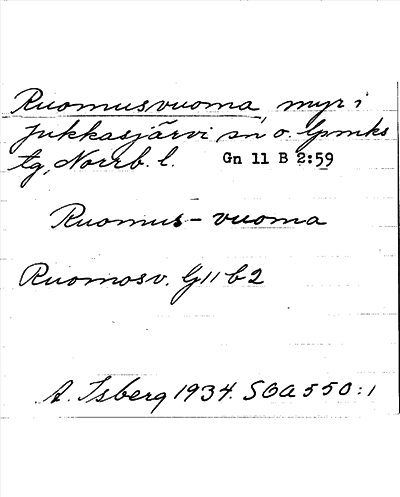 Ruomusvuoma, myr i
Jukkasjärvi sn o. lpmks
tg, Norrb. l. Gn 11 B 2:59
Ruomus-vuoma
Ruomosv. G11b2
A. Isberg 1934. SOA 550:1